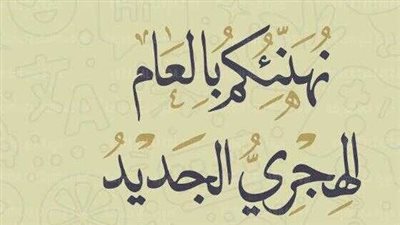 نُهَنِّئُكُم بِالعَام
الهِجْرِيُّ الجَدِيدُ